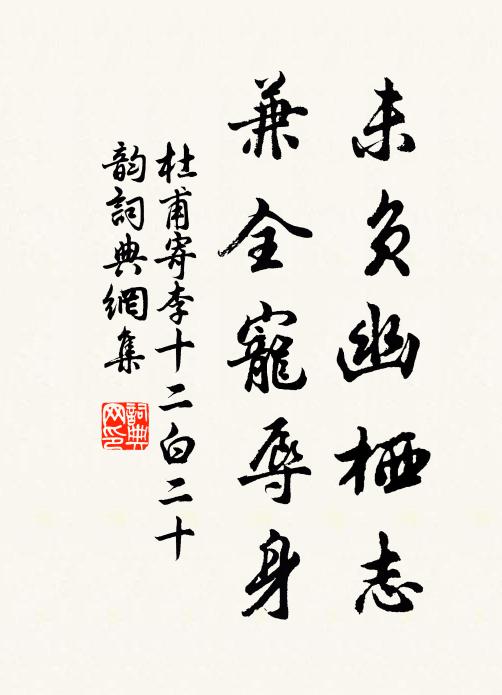 未負幽栖志
兼全寵辱身
杜甫寄李十二白二十
韵詞典網集
詞典
网印